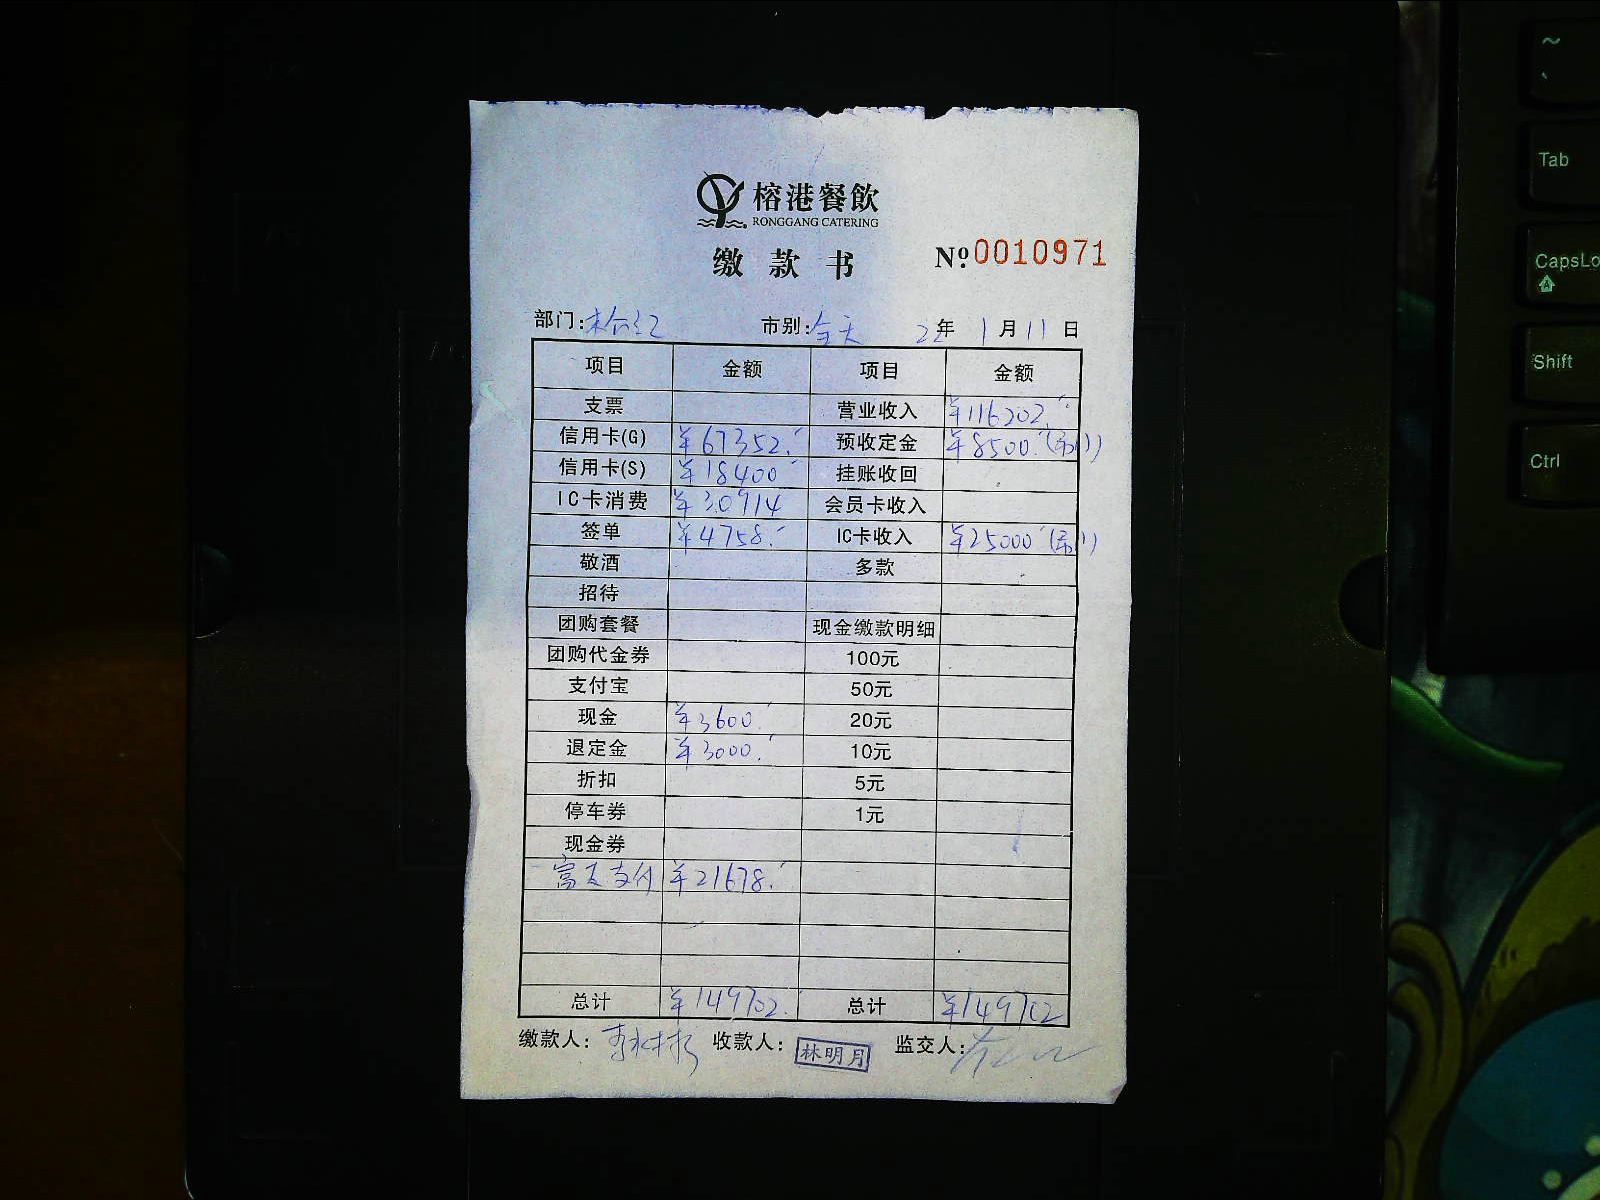 榕港餐飲
RONGGANG CATERING
缴款书 Nº 0010971
部门: 市别:全天 22年 1月11日
项目 金额 项目 金额
支票 营业收入 ¥116202.-
信用卡(G) ¥67352.- 预收定金 ¥8500.-
信用卡(S) ¥18400.- 挂账收回
IC卡消费 ¥30914 会员卡收入
签单 ¥4758.- IC卡收入 ¥25000.-
敬酒 多款
招待
团购套餐 现金缴款明细
团购代金券 100元
支付宝 50元
现金 ¥3600.- 20元
退定金 ¥3000.- 10元
折扣 5元
停车券 1元
现金券
富友支付 ¥21678.-
总计 ¥149702.- 总计 ¥149702
缴款人: 收款人:林明月 监交人:
~
Tab
CapsLo
Shift
Ctrl